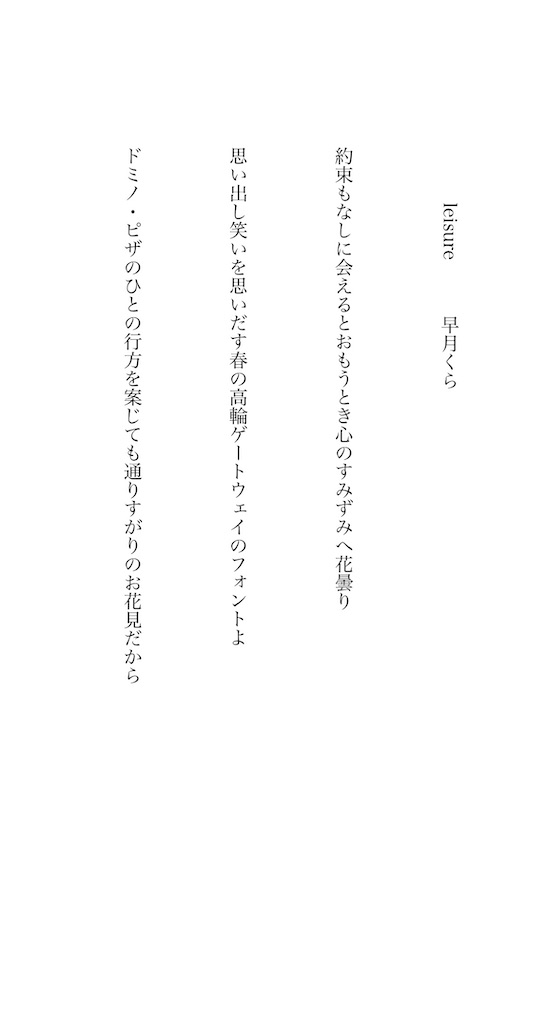 leisure　　早月くら
約束もなしに会えるとおもうとき心のすみずみへ花曇り
思い出し笑いを思いだす春の高輪ゲートウェイのフォントよ
ドミノ・ピザのひとの行方を案じても通りすがりのお花見だから